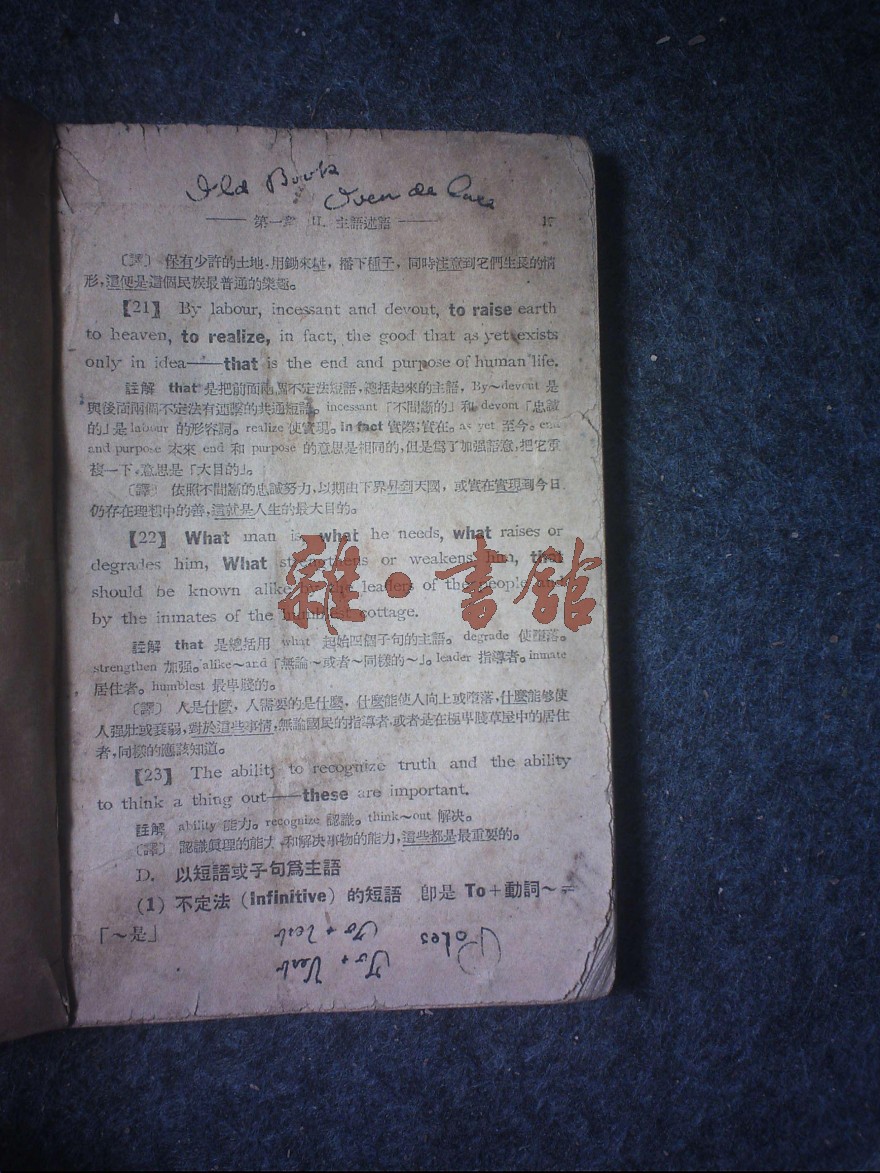 Old Book
第一章 II. 主語述語 17
〔譯〕 保有少許的土地,用鋤來墾,播下種子,同時注意到它們生長的情
形,這便是這個民族最普通的樂趣。
【21】 By labour, incessant and devout, to raise earth
to heaven, to realize, in fact, the good that as yet exists
only in idea——that is the end and purpose of human life.
註解 that 是把前面兩個不定法短語,總括起來的主語,By～devout 是
與後面兩個不定法有連繫的共通短語。incessant「不間斷的」和 devout「忠誠
的」是 labour 的形容詞。realize 使實現。in fact 實際;實在。as yet 至今。end
and purpose 本來 end 和 purpose 的意思是相同的,但是爲了加强語意,把它重
複一下,意思是「大目的」。
〔譯〕 依照不間斷的忠誠努力,以期由下界昇到天國,或實在實現到今日
仍存在理想中的善,這就是人生的最大目的。
【22】 What man is, what he needs, what raises or
degrades him, What strengthens or weakens him, that
should be known alike by the leaders of the people and
by the inmates of the humblest cottage.
註解 that 是總括用 what 起始四個子句的主語。degrade 使墮落。
strengthen 加强。alike～and「無論～或者～同樣的～」。leader 指導者。inmate
居住者。humblest 最卑賤的。
〔譯〕 人是什麼,人需要的是什麼,什麼能使人向上或墮落,什麼能够使
人强壯或衰弱,對於這些事情,無論國民的指導者,或者是在極卑賤草屋中的居住
者,同樣的應該知道。
【23】 The ability to recognize truth and the ability
to think a thing out——these are important.
註解 ability 能力。recognize 認識。think～out 解决。
〔譯〕 認識眞理的能力,和解决事物的能力,這些都是最重要的。
D. 以短語或子句爲主語
(1) 不定法 (Infinitive) 的短語 卽是 To＋動詞～＝
「～是」
To + Verb
To + Verb
雜·書館